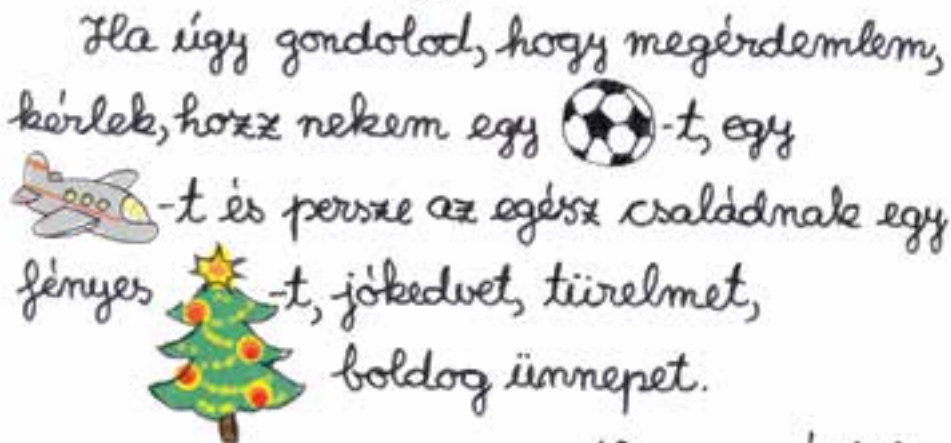 Ha úgy gondolod, hogy megérdemlem,
kérlek, hozz nekem egy -t, egy
-t és persze az egész családnak egy
fényes -t, jókedvet, türelmet,
boldog ünnepet.